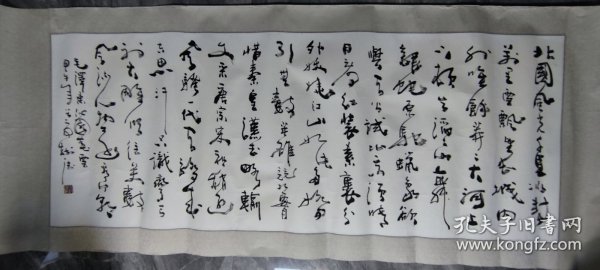 北國風光千里冰封
萬里雪飄望長城内
外唯餘莽莽大河上
下頓失滔滔山舞
銀蛇原馳蠟象欲
與天公試比高須晴
日看紅裝素裹分
外妖嬈江山如此多嬌
引無數英雄競折腰
惜秦皇漢武略輸
文采唐宗宋祖稍遜
風騷一代天驕成
吉思汗只識彎弓
射大雕俱往矣數
風流人物還看今朝
毛澤東沁園春雪
甲午
孔夫子旧书网
www.kongfz.com